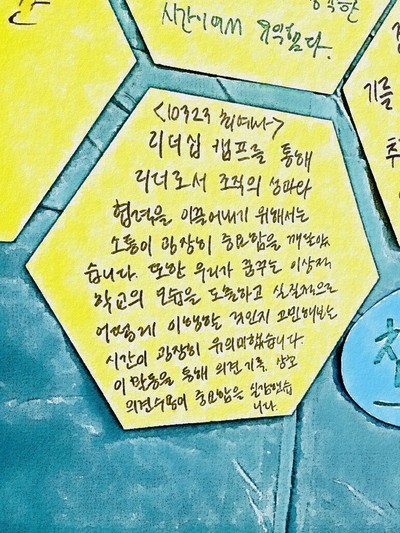 시간이어서 유익했다.
기를
<10323 최예나>
리더십 캠프를 통해
리더로서 조직의 성과와
협력을 이끌어내기 위해서는
소통이 굉장히 중요함을 깨달았
습니다. 또한 우리가 꿈꾸는 이상적
학교의 모습을 도출하고 실질적으로
어떻게 이행할 것인지 고민해보는
시간이 굉장히 유의미했습니다.
이 활동을 통해 의견 기록, 상호
의견수용이 중요함을 실감했습
니다.